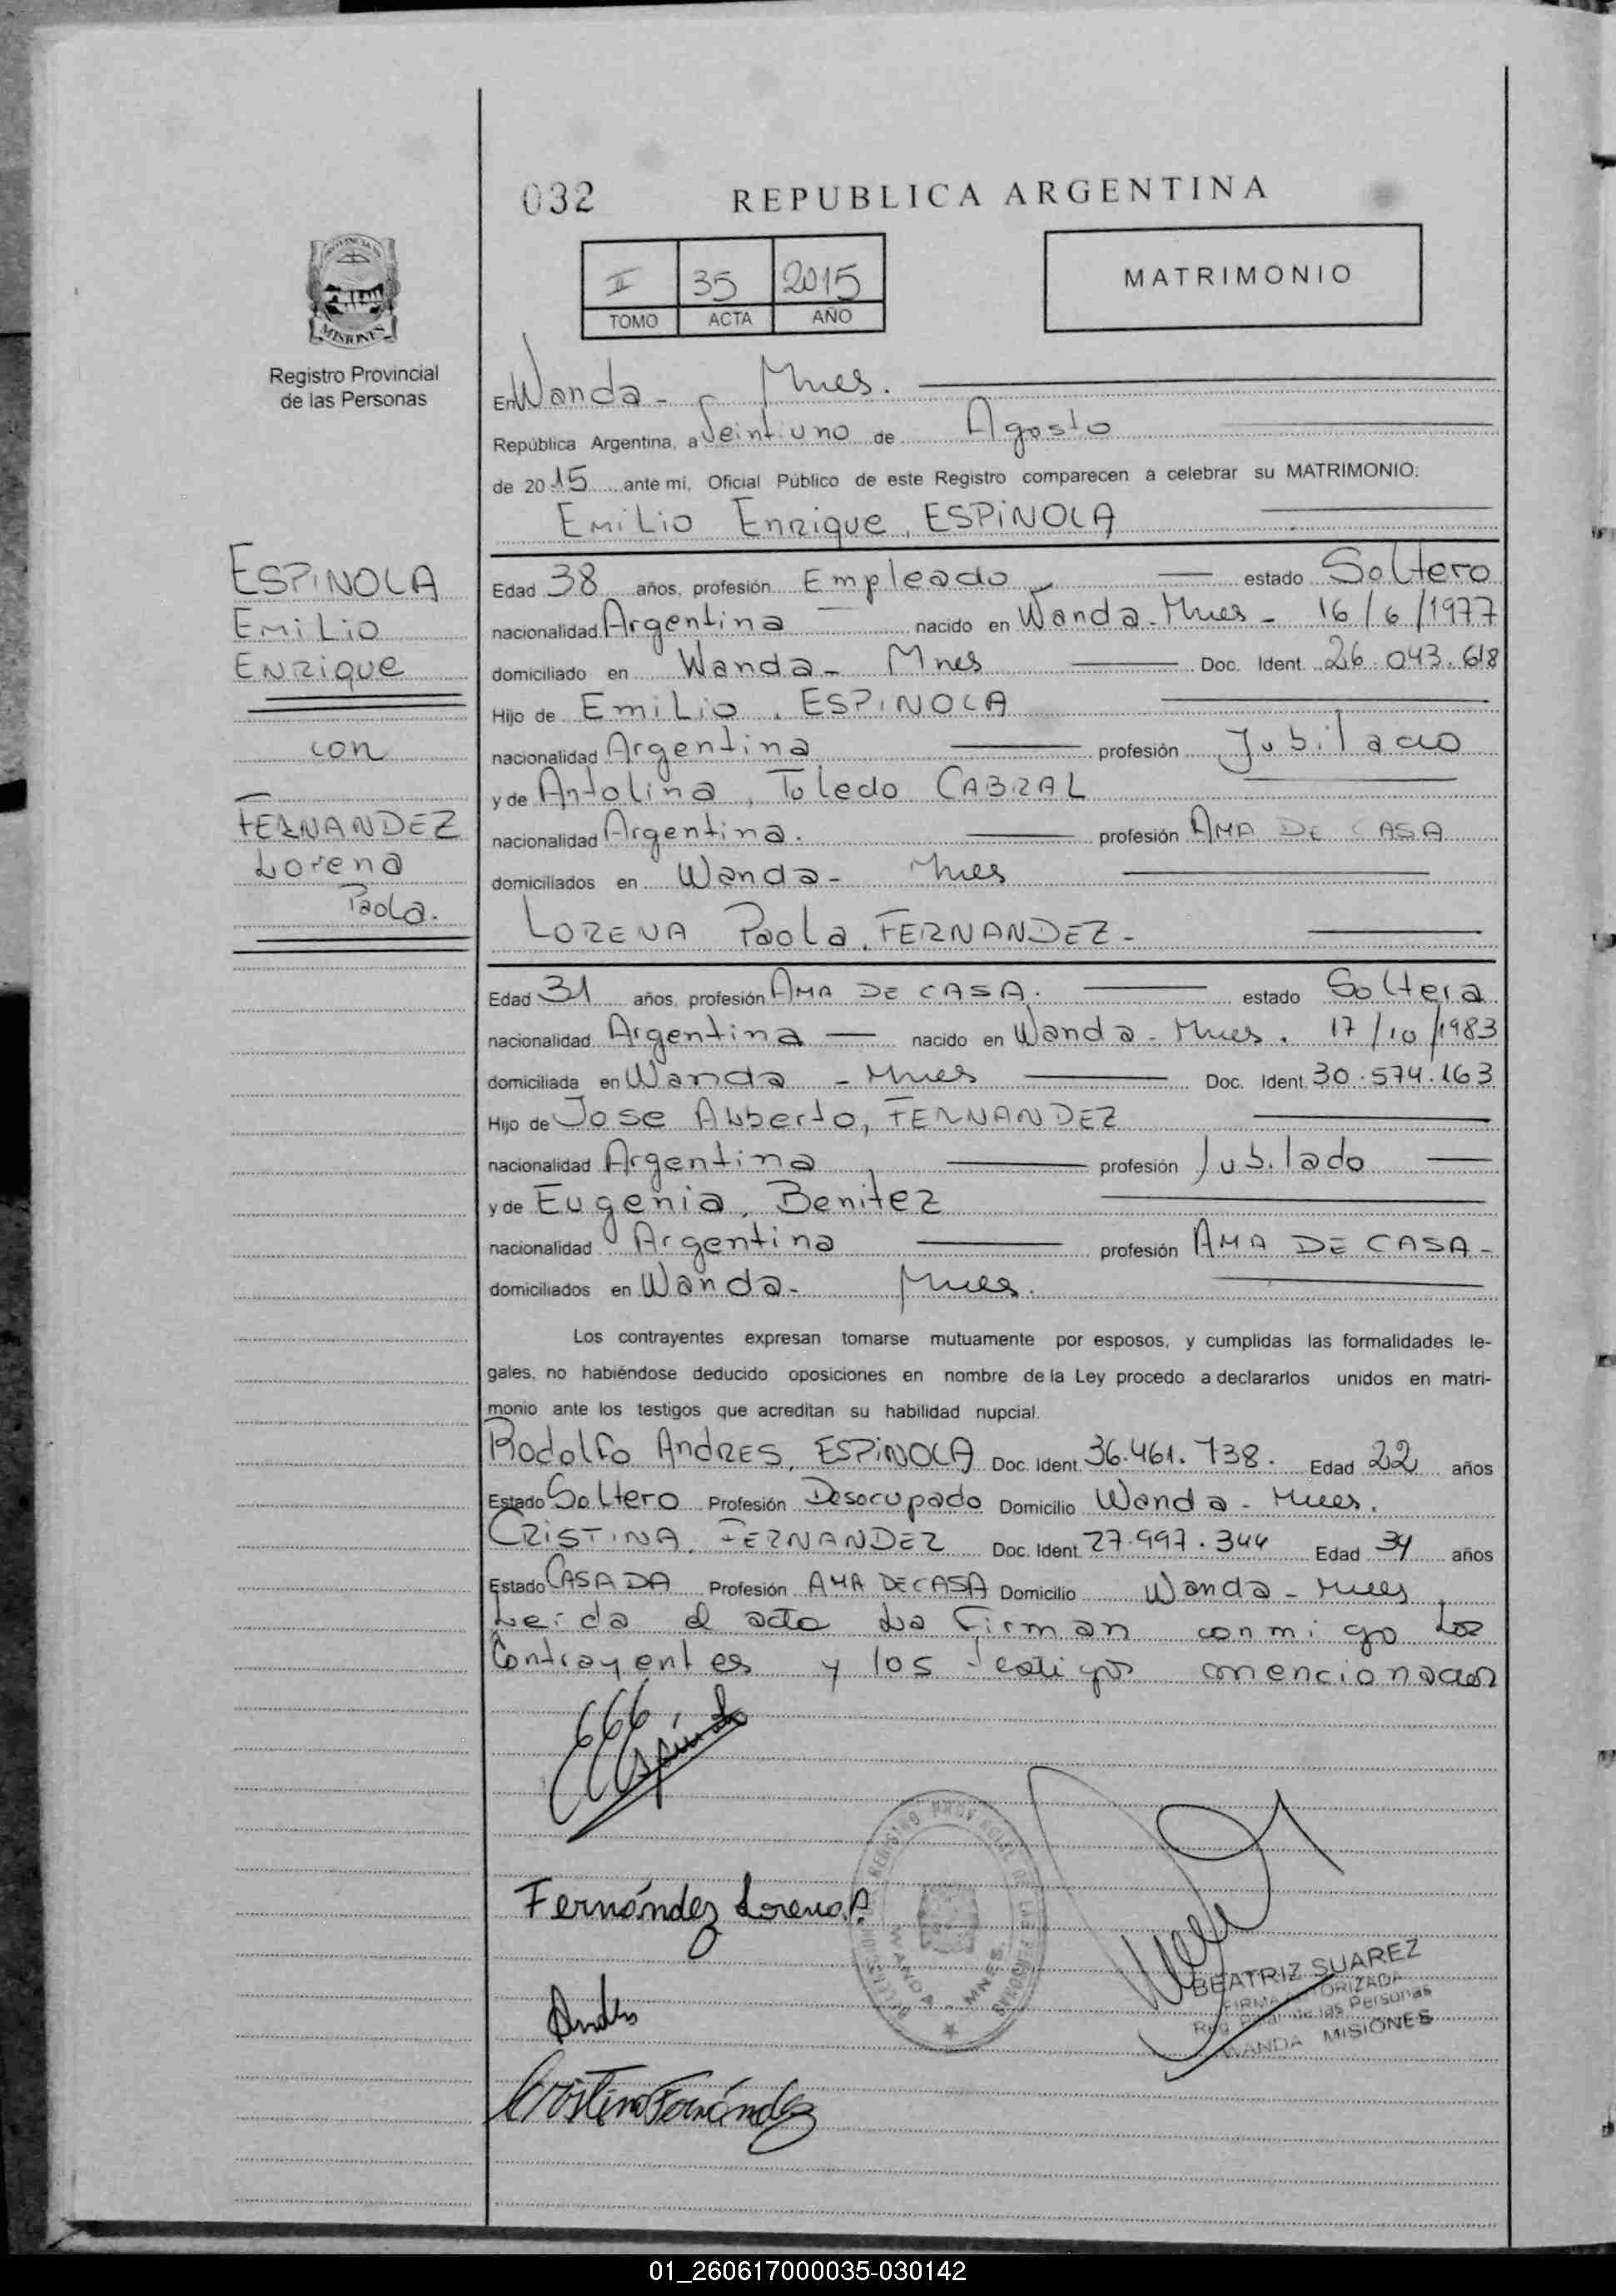 032
REPUBLICA ARGENTINA
PROVINCIA
MISIONES
Registro Provincial
de las Personas
II 35 2015
TOMO ACTA AÑO
MATRIMONIO
En Wanda - Mnes.
República Argentina, a Veintiuno de Agosto
de 2015 ante mi, Oficial Público de este Registro comparecen a celebrar su MATRIMONIO:
Emilio Enrique, ESPINOLA
ESPINOLA
Emilio
Enrique
con
FERNANDEZ
Lorena
Paola.
Edad 38 años, profesión Empleado estado Soltero
nacionalidad Argentina nacido en Wanda - Mnes - 16/6/1977
domiciliado en Wanda - Mnes Doc. Ident. 26.043.618
Hijo de Emilio, ESPINOLA
nacionalidad Argentina profesión Jubilado
y de Antolina, Toledo CABRAL
nacionalidad Argentina. profesión AMA DE CASA
domiciliados en Wanda - Mnes
LORENA Paola, FERNANDEZ -
Edad 31 años, profesión AMA DE CASA. estado Soltera
nacionalidad Argentina nacido en Wanda - Mnes. 17/10/1983
domiciliada en Wanda - Mnes Doc. Ident. 30.574.163
Hijo de Jose Alberto, FERNANDEZ
nacionalidad Argentina profesión Jubilado
y de Eugenia, Benitez
nacionalidad Argentina profesión AMA DE CASA -
domiciliados en Wanda - Mnes.
Los contrayentes expresan tomarse mutuamente por esposos, y cumplidas las formalidades le-
gales, no habiéndose deducido oposiciones en nombre de la Ley procedo a declararlos unidos en matri-
monio ante los testigos que acreditan su habilidad nupcial.
Rodolfo Andres, ESPINOLA Doc. Ident. 36.461.738. Edad 22 años
Estado Soltero Profesión Desocupado Domicilio Wanda - Mnes.
CRISTINA, FERNANDEZ Doc. Ident. 27.997.344 Edad 34 años
Estado CASADA Profesión AMA DE CASA Domicilio Wanda - Mnes
Leida el acta La Firman conmigo Los
Contrayentes y los testigos mencionados
EEEspinola
Fernández Lorena P.
Andres
Cristina Fernández
REGISTRO PROVINCIAL DE LAS PERSONAS
WANDA - MNES.
BEATRIZ SUAREZ
FIRMA AUTORIZADA
Reg. Pcial. de las Personas
WANDA MISIONES
01_260617000035-030142